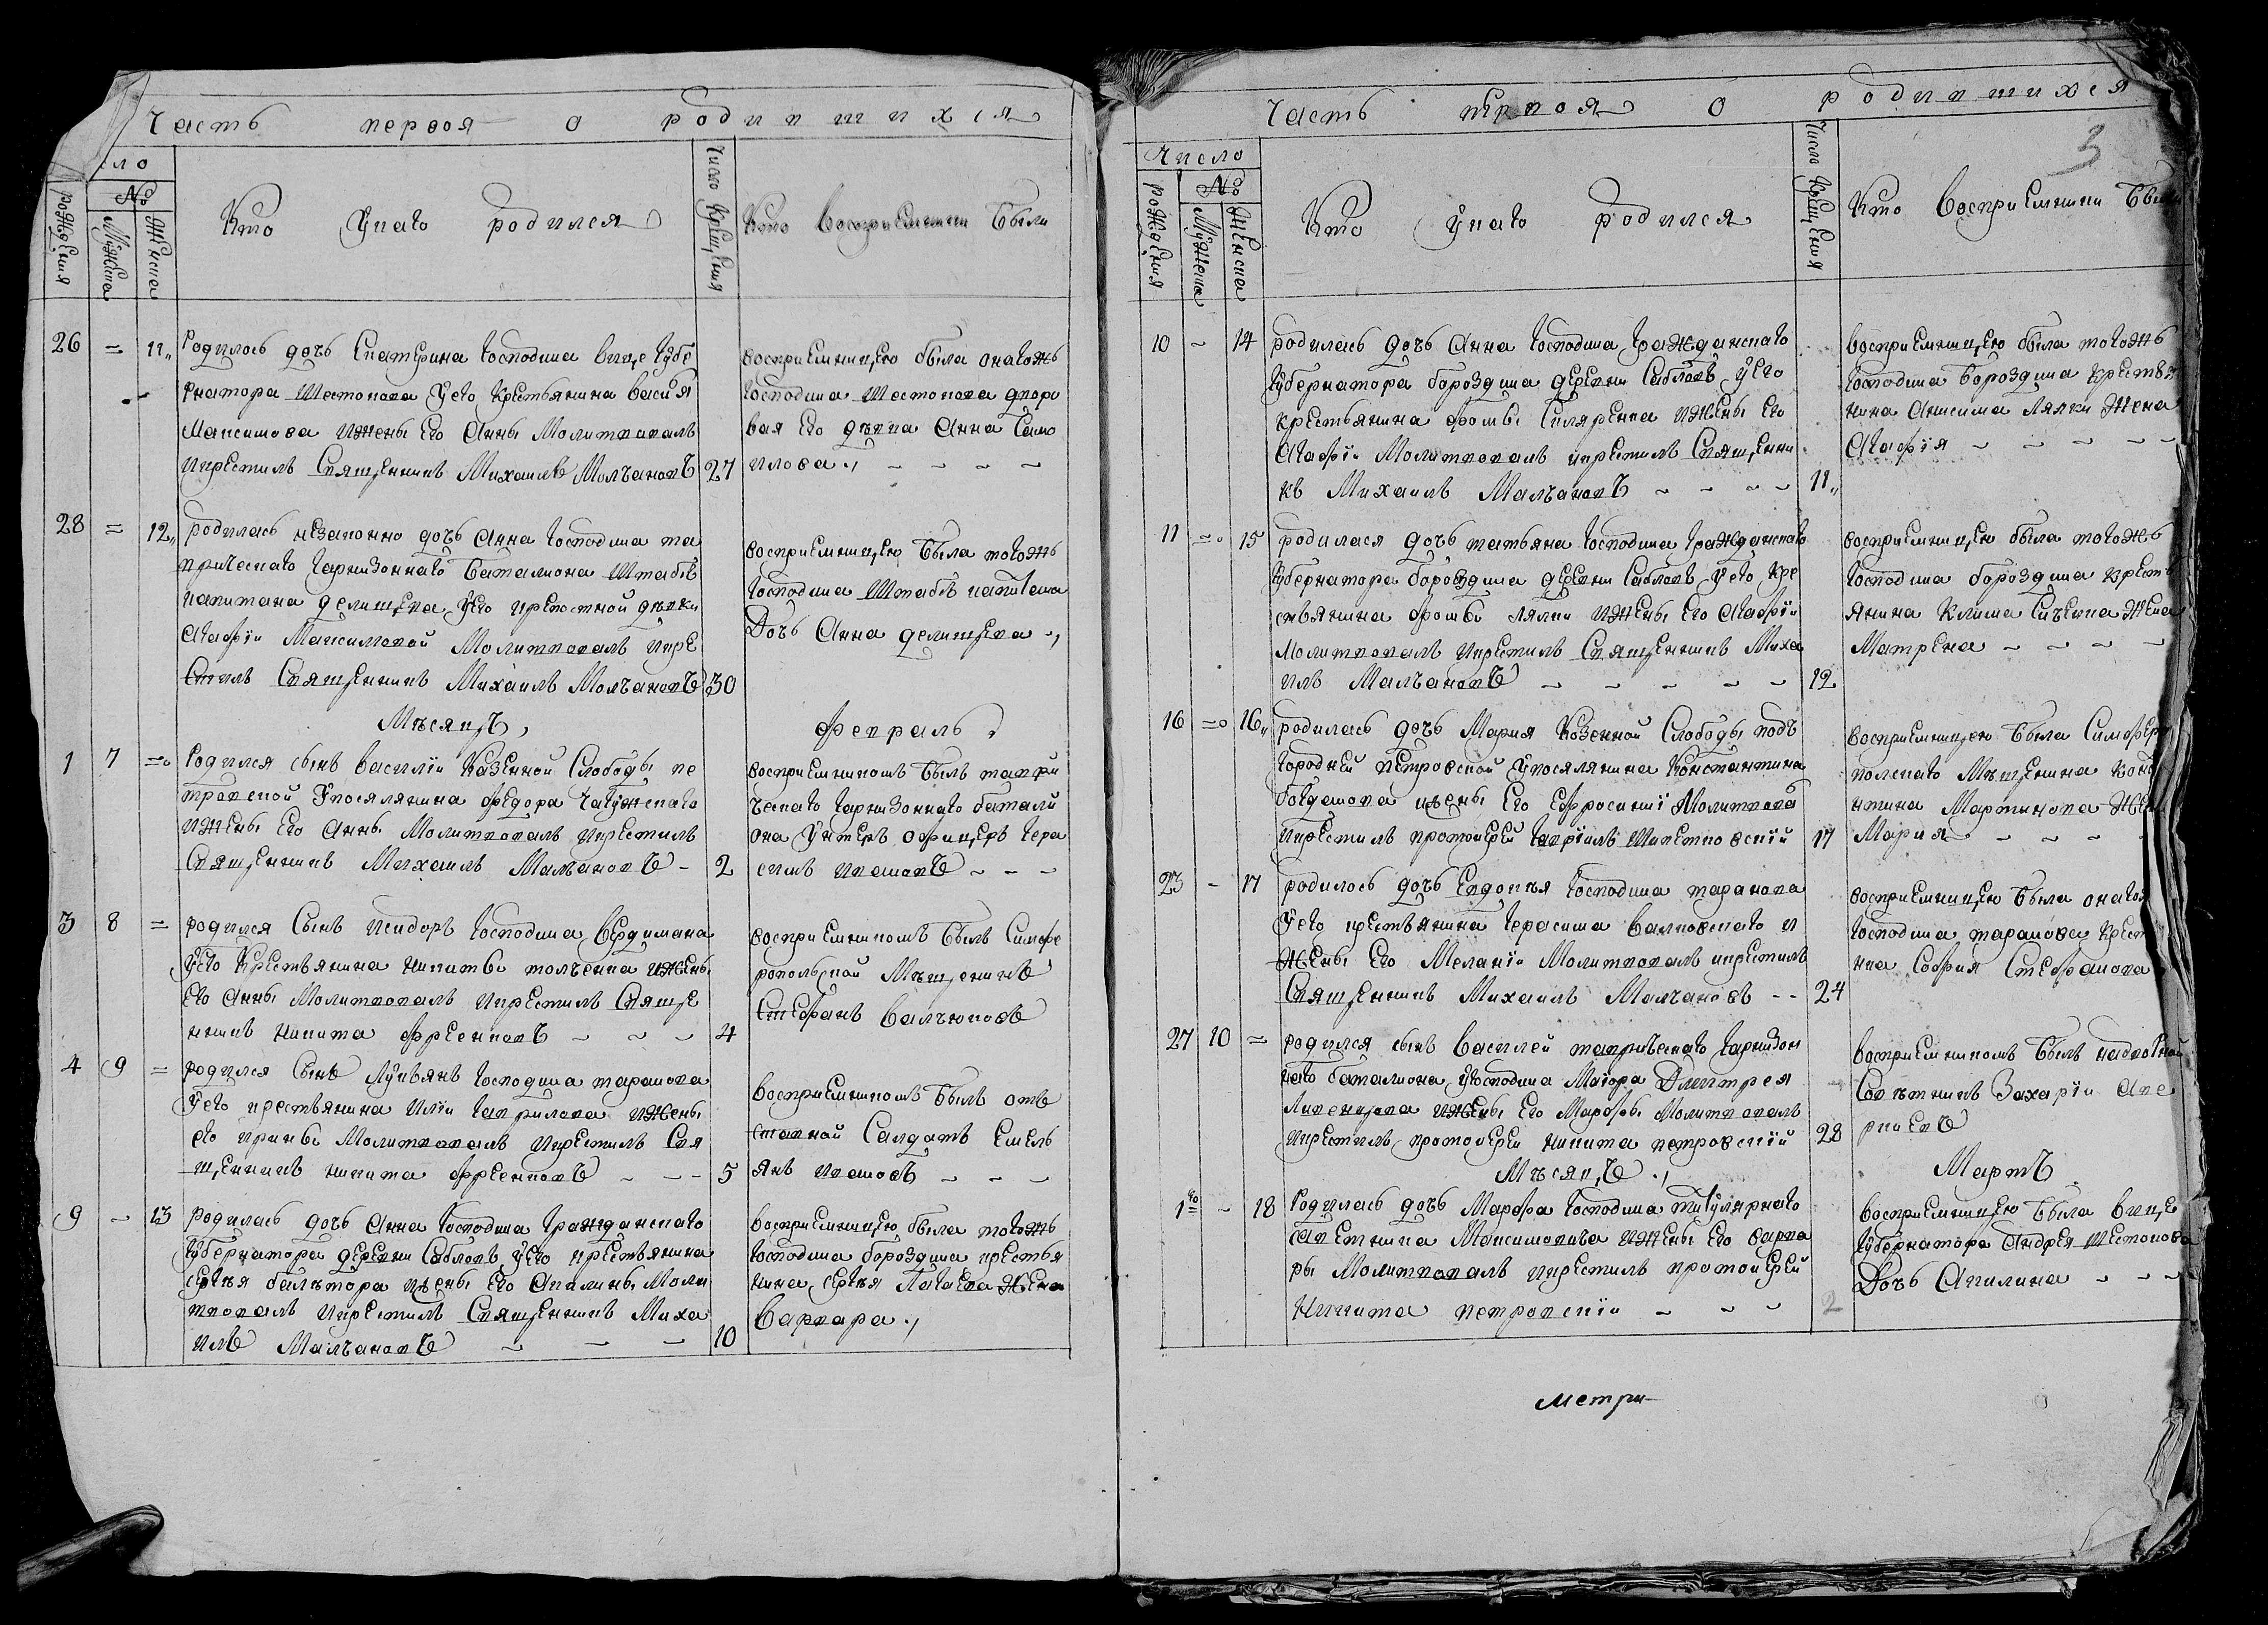 Часть первоя о родившихся
сло
№
рождения
Мужеска
Женска
Кто Укаго родился
Число Крещения
Кто восприемники были
26 = 11,, Родилась дочь Екатерина Господина вице Губе
рнатора Шестокова Уего Крестьянина васи'я
Максимова ижены Его Анны Молитвовалъ
икрестилъ Священникъ Михаилъ Молчановъ 27
восприемницею была онагожъ
Господина Шестокова дворо
вая его девка Анна Само
илова
28 = 12,, родилась незаконно дочь Анна Господина та
врическаго гарнизоннаго баталиона Штабсъ
капитана делищева Уего крепостной девки
Агафiи Максимовой Молитвовалъ икре
стилъ Священникъ Михаилъ Молчановъ 30
восприемницею была тогожъ
Господина Штабсъ капитана
Дочь Анна делищева
Мъсяцъ, Февраль
1 7 = Родился сынъ василiй Казенной Слободы пе
тровской Упоселянина федора чагужскаго
ижены Его Анны Молитвовалъ икрестилъ
Священникъ Михаилъ Малчановъ 2
восприемникомъ былъ таври
ческаго гарнизоннаго батали
она Унтеръ офицеръ гера
симъ ивановъ
3 8 = родился Сынъ исидоръ Господина вердимана
Уего Крестьянина никиты толченка ижены
Его Анны Молитвовалъ икрестилъ Священ
никъ никита ефремковъ 4
восприемникомъ былъ Симфе
ропольской Мъщенинъ
Стефанъ
4 9 = родился Сынъ Лукьянъ Господина таранова
Уего крестьянина илiи гаврилова ижены
его ирины Молитвовалъ икрестилъ Свя
щенникъ никита ефремковъ 5
восприемникомъ былъ отъ
ставной Салдатъ Емель
янъ ивановъ
9 - 13 родилась дочь Анна Господина гражданскаго
Губернатора деревни Сабловъ Уего крестьянина
сергъя ижены Его Акилины Моли
твовалъ икрестилъ Священникъ Миха
илъ Малчановъ 10
восприемницею была тогожъ
Господина бороздина крестья
нина сергъя жена
варвара
Часть первоя о родившихся
3
Число
№
рождения
Мужеска
Женска
Кто Укаго родился
Число Крещения
Кто восприемники были
10 - 14 родилась дочь Анна Господина гражданскаго
Губернатора бороздина деревни Сабловъ Уего
крестьянина фомы Скляренка ижены Его
Агафiи Молитвовалъ икрестилъ Священни
къ Михаилъ Малчановъ 11,,
восприемницею была тогожъ
Господина бороздина крестья
нина Анисима Лялки жена
Агафiя
11 = 15 родилася дочь татьяна Господина гражданскаго
Губернатора бороздина деревни Сабловъ Уего кре
стьянина фомы лялки ижены Его Агафiи
Молитвовалъ икрестилъ Священникъ Миха
илъ Малчановъ 12
восприемницею была тогожъ
Господина бороздина кресть
янина Клима жена
Матрена
16 = 16,, родилась дочь Мария Козенной Слободы подъ
городней петровской Упоселянина Константина
богданова ижены его Ефросинiи Молитвова
икрестилъ протоиерей гаврiилъ 17
восприемницею была Симфер
полскаго Мъщенина Конс
нтина Мартинова жен
Мария
23 - 17 родилось дочь Евдокия Господина таранова
Уего крестьянина герасима валковскаго и
жены его Меланiи Молитвовалъ икрестилъ
Священникъ Михаилъ Малчановъ 24
восприемницею была онагож
Господина таранова крест
нка София Стефанова
27 10 = родился сынъ василей таврическаго гарнизон
наго баталиона Угосподина Маiора Дмитрея
ижены Его Марфы Молитвовалъ
икрестилъ протоиерей никита петровскiй 28
восприемникомъ былъ надворной
Совътникъ Захарiй Аве
ркiевъ
Мъсяцъ Мартъ
1го - 18 Родилась дочь Марфа Господина титулярнаго
совъетника Максимовича ижены его варва
ры Молитвовалъ икрестилъ протоиерей
никита петровскiй 2
восприемницею была вице
Губернатора Андрея шестокова
Дочь Акилина
метри